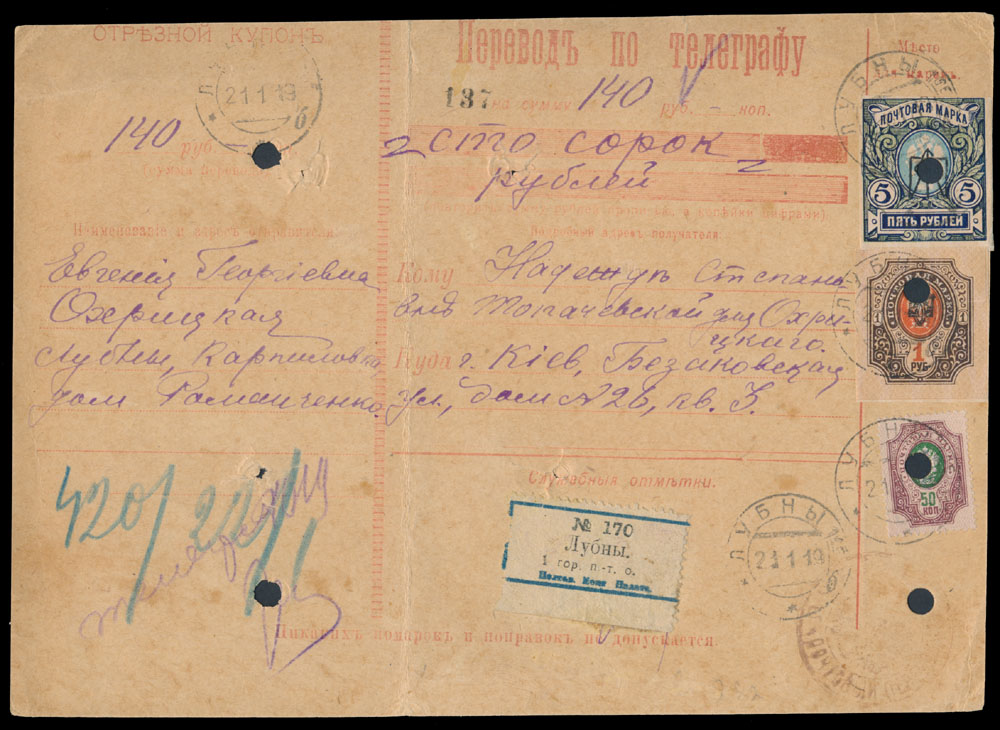 ОТРѢЗНОЙ КУПОНЪ.
ЛУБНЫ
21 1 19
б
140
руб.
Наименованіе и адресъ отправителя:
Евгенія Георгіевна
Охрицкая
Лубны, Карпиловка
дом Романченко.
420/22/1
Переводъ по телеграфу
137 на сумму 140 руб. – коп.
сто сорок
рублей
Подробный адресъ получателя:
Кому Надеждѣ Степано
внѣ Топачевской для Охри
цкаго.
Куда г. Кіев, Безаковская
ул., дом № 26, кв. 3.
Служебныя отмѣтки.
№ 170
Лубны.
1 гор. п.-т. о.
Полтав. Конт Палата.
ЛУБНЫ
21 1 19
б
Никакихъ помарокъ и поправокъ не допускается.
Мѣсто
ЛУБНЫ
ПОЧТОВАЯ МАРКА
5 5
ПЯТЬ РУБЛЕЙ
ЛУБНЫ
ПОЧТОВАЯ МАРКА
1 1
1
РУБ
ЛУБНЫ
21
ПОЧТОВАЯ МАРКА
50
КОП